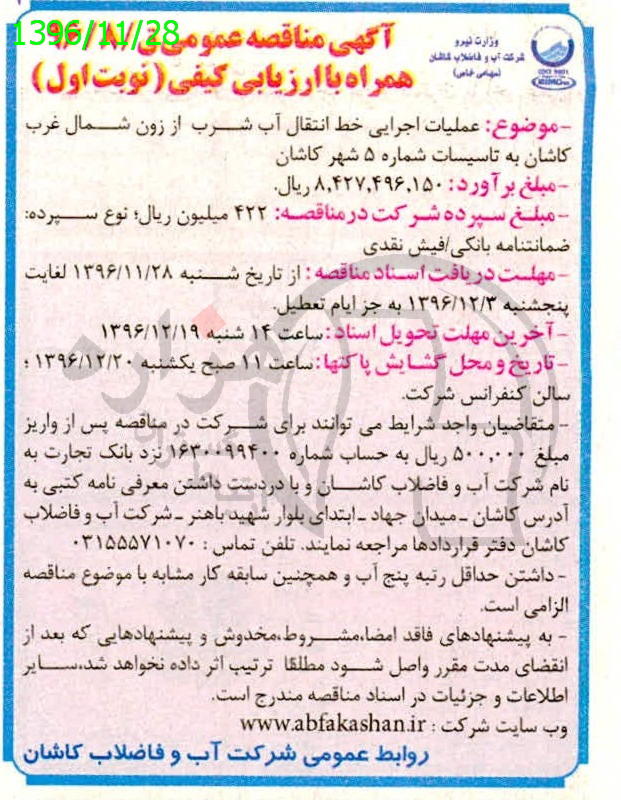 1396/11/28
آگهی مناقصه عمومی
همراه با ارزیابی کیفی (نوبت اول)
وزارت نیرو
شرکت آب و فاضلاب کاشان
(سهامی خاص)
-موضوع: عملیات اجرایی خط انتقال آب شرب از زون شمال غرب
کاشان به تاسیسات شماره ۵ شهر کاشان
-مبلغ برآورد: ۸,۴۲۷,۴۹۶,۱۵۰ ریال.
-مبلغ سپرده شرکت در مناقصه: ۴۲۲ میلیون ریال؛ نوع سپرده:
ضمانتنامه بانکی/فیش نقدی
-مهلت دریافت اسناد مناقصه: از تاریخ شنبه ۱۳۹۶/۱۱/۲۸ لغایت
پنجشنبه ۱۳۹۶/۱۲/۳ به جز ایام تعطیل.
-آخرین مهلت تحویل اسناد: ساعت ۱۴ شنبه ۱۳۹۶/۱۲/۱۹
-تاریخ و محل گشایش پاکتها: ساعت ۱۱ صبح یکشنبه ۱۳۹۶/۱۲/۲۰ ؛
سالن کنفرانس شرکت.
- متقاضیان واجد شرایط می توانند برای شرکت در مناقصه پس از واریز
مبلغ ۵۰۰,۰۰۰ ریال به حساب شماره ۱۶۳۰۰۹۹۴۰۰ نزد بانک تجارت به
نام شرکت آب و فاضلاب کاشان و با دردست داشتن معرفی نامه کتبی به
آدرس کاشان ـ میدان جهاد ـ ابتدای بلوار شهید باهنر ـ شرکت آب و فاضلاب
کاشان دفتر قراردادها مراجعه نمایند. تلفن تماس : ۰۳۱۵۵۵۷۱۰۷۰
- داشتن حداقل رتبه پنج آب و همچنین سابقه کار مشابه با موضوع مناقصه
الزامی است.
- به پیشنهادهای فاقد امضا،مشروط،مخدوش و پیشنهادهایی که بعد از
انقضای مدت مقرر واصل شود مطلقا ترتیب اثر داده نخواهد شد،سایر
اطلاعات و جزئیات در اسناد مناقصه مندرج است.
وب سایت شرکت : www.abfakashan.ir
روابط عمومی شرکت آب و فاضلاب کاشان